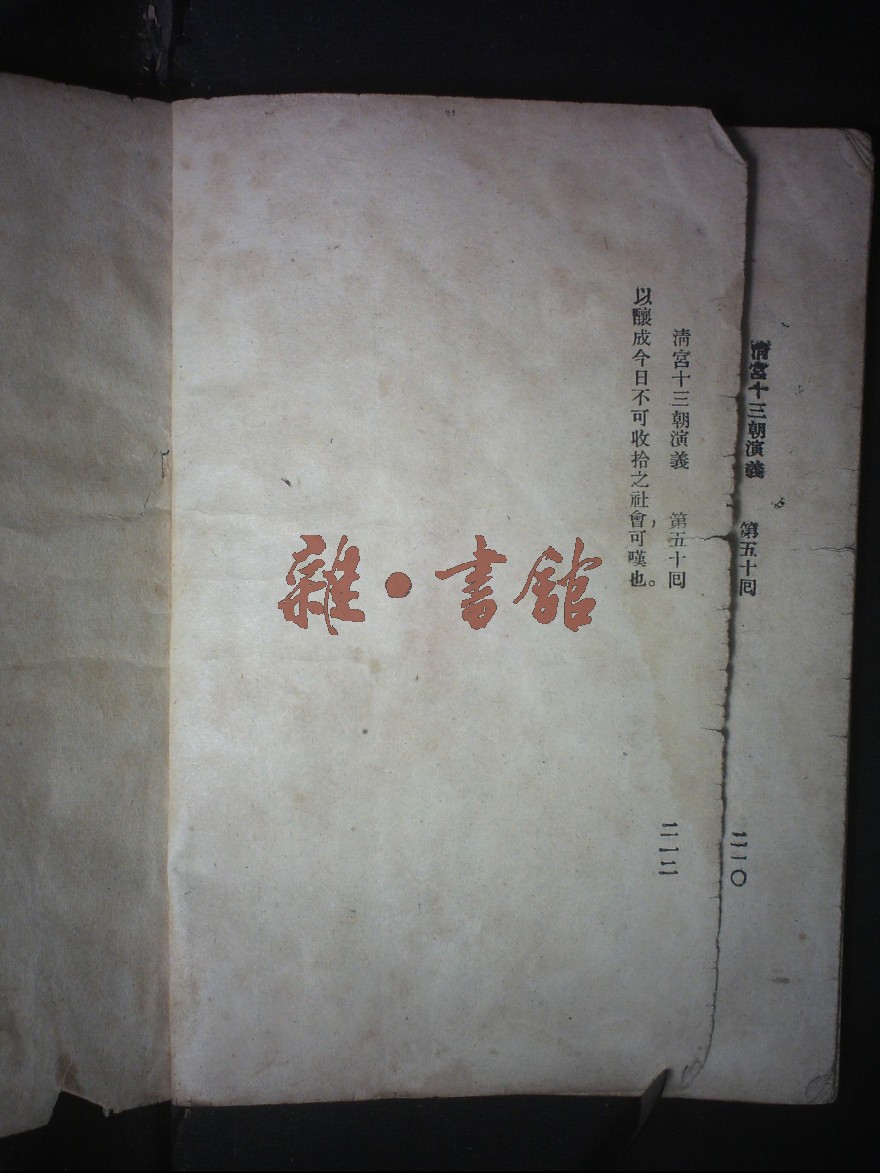 清宮十三朝演義　第五十囘　二一〇
清宮十三朝演義　第五十囘　二一二
以釀成今日不可收拾之社會，可嘆也。
雜·書館